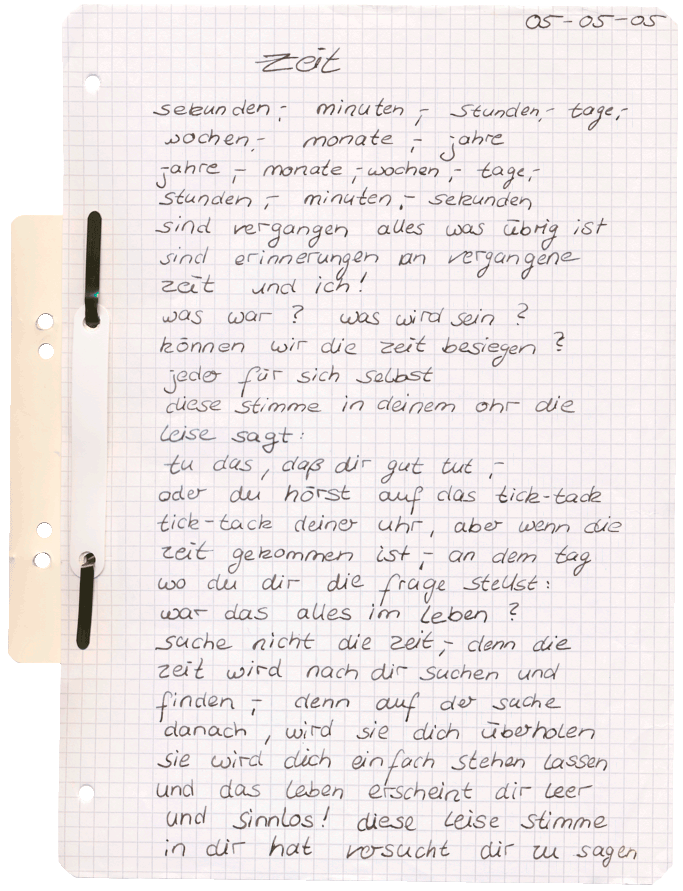 05-05-05
zeit
sekunden,- minuten,- stunden,- tage,-
wochen,- monate,- jahre
jahre,- monate,- wochen,- tage,-
stunden,- minuten,- sekunden
sind vergangen alles was übrig ist
sind erinnerungen an vergangene
zeit und ich!
was war? was wird sein?
können wir die zeit besiegen?
jeder für sich selbst
diese stimme in deinem ohr die
leise sagt:
tu das, daß dir gut tut,-
oder du hörst auf das tick-tack
tick-tack deiner uhr, aber wenn die
zeit gekommen ist,- an dem tag
wo du dir die frage stellst:
war das alles im leben?
suche nicht die zeit,- denn die
zeit wird nach dir suchen und
finden,- denn auf der suche
danach, wird sie dich überholen
sie wird dich einfach stehen lassen
und das leben erscheint dir leer
und sinnlos! diese leise stimme
in dir hat versucht dir zu sagen